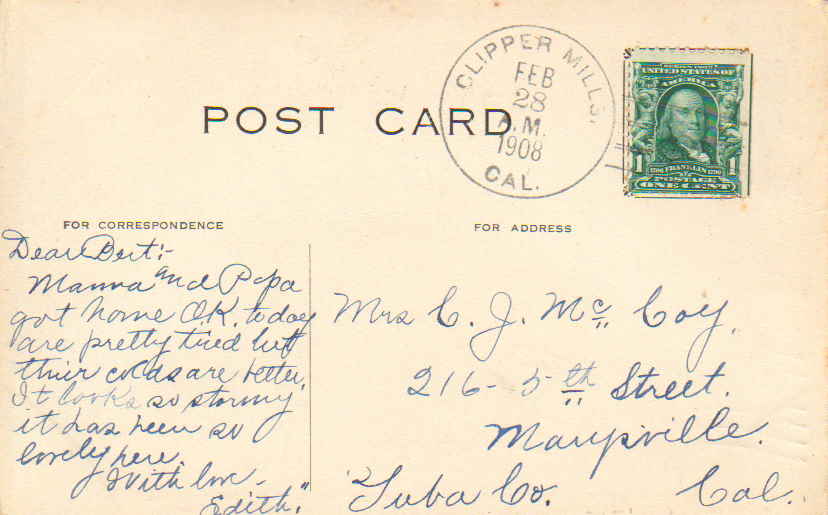 POST CARD
CLIPPER MILLS,
FEB
28
A.M.
1908
CAL.
SERIES 1902
UNITED STATES OF
AMERICA
1 1706 FRANKLIN 1790 1
POSTAGE
ONE CENT
FOR CORRESPONDENCE
Dear Bert:-
Mama and Papa
got home O.K. today
are pretty tired but
their colds are better.
It looks so stormy
it has been so
lovely here.
With love -
Edith."
FOR ADDRESS
Mrs C. J. McCoy,
216 - 5th Street.
Marysville.
Yuba Co. Cal.